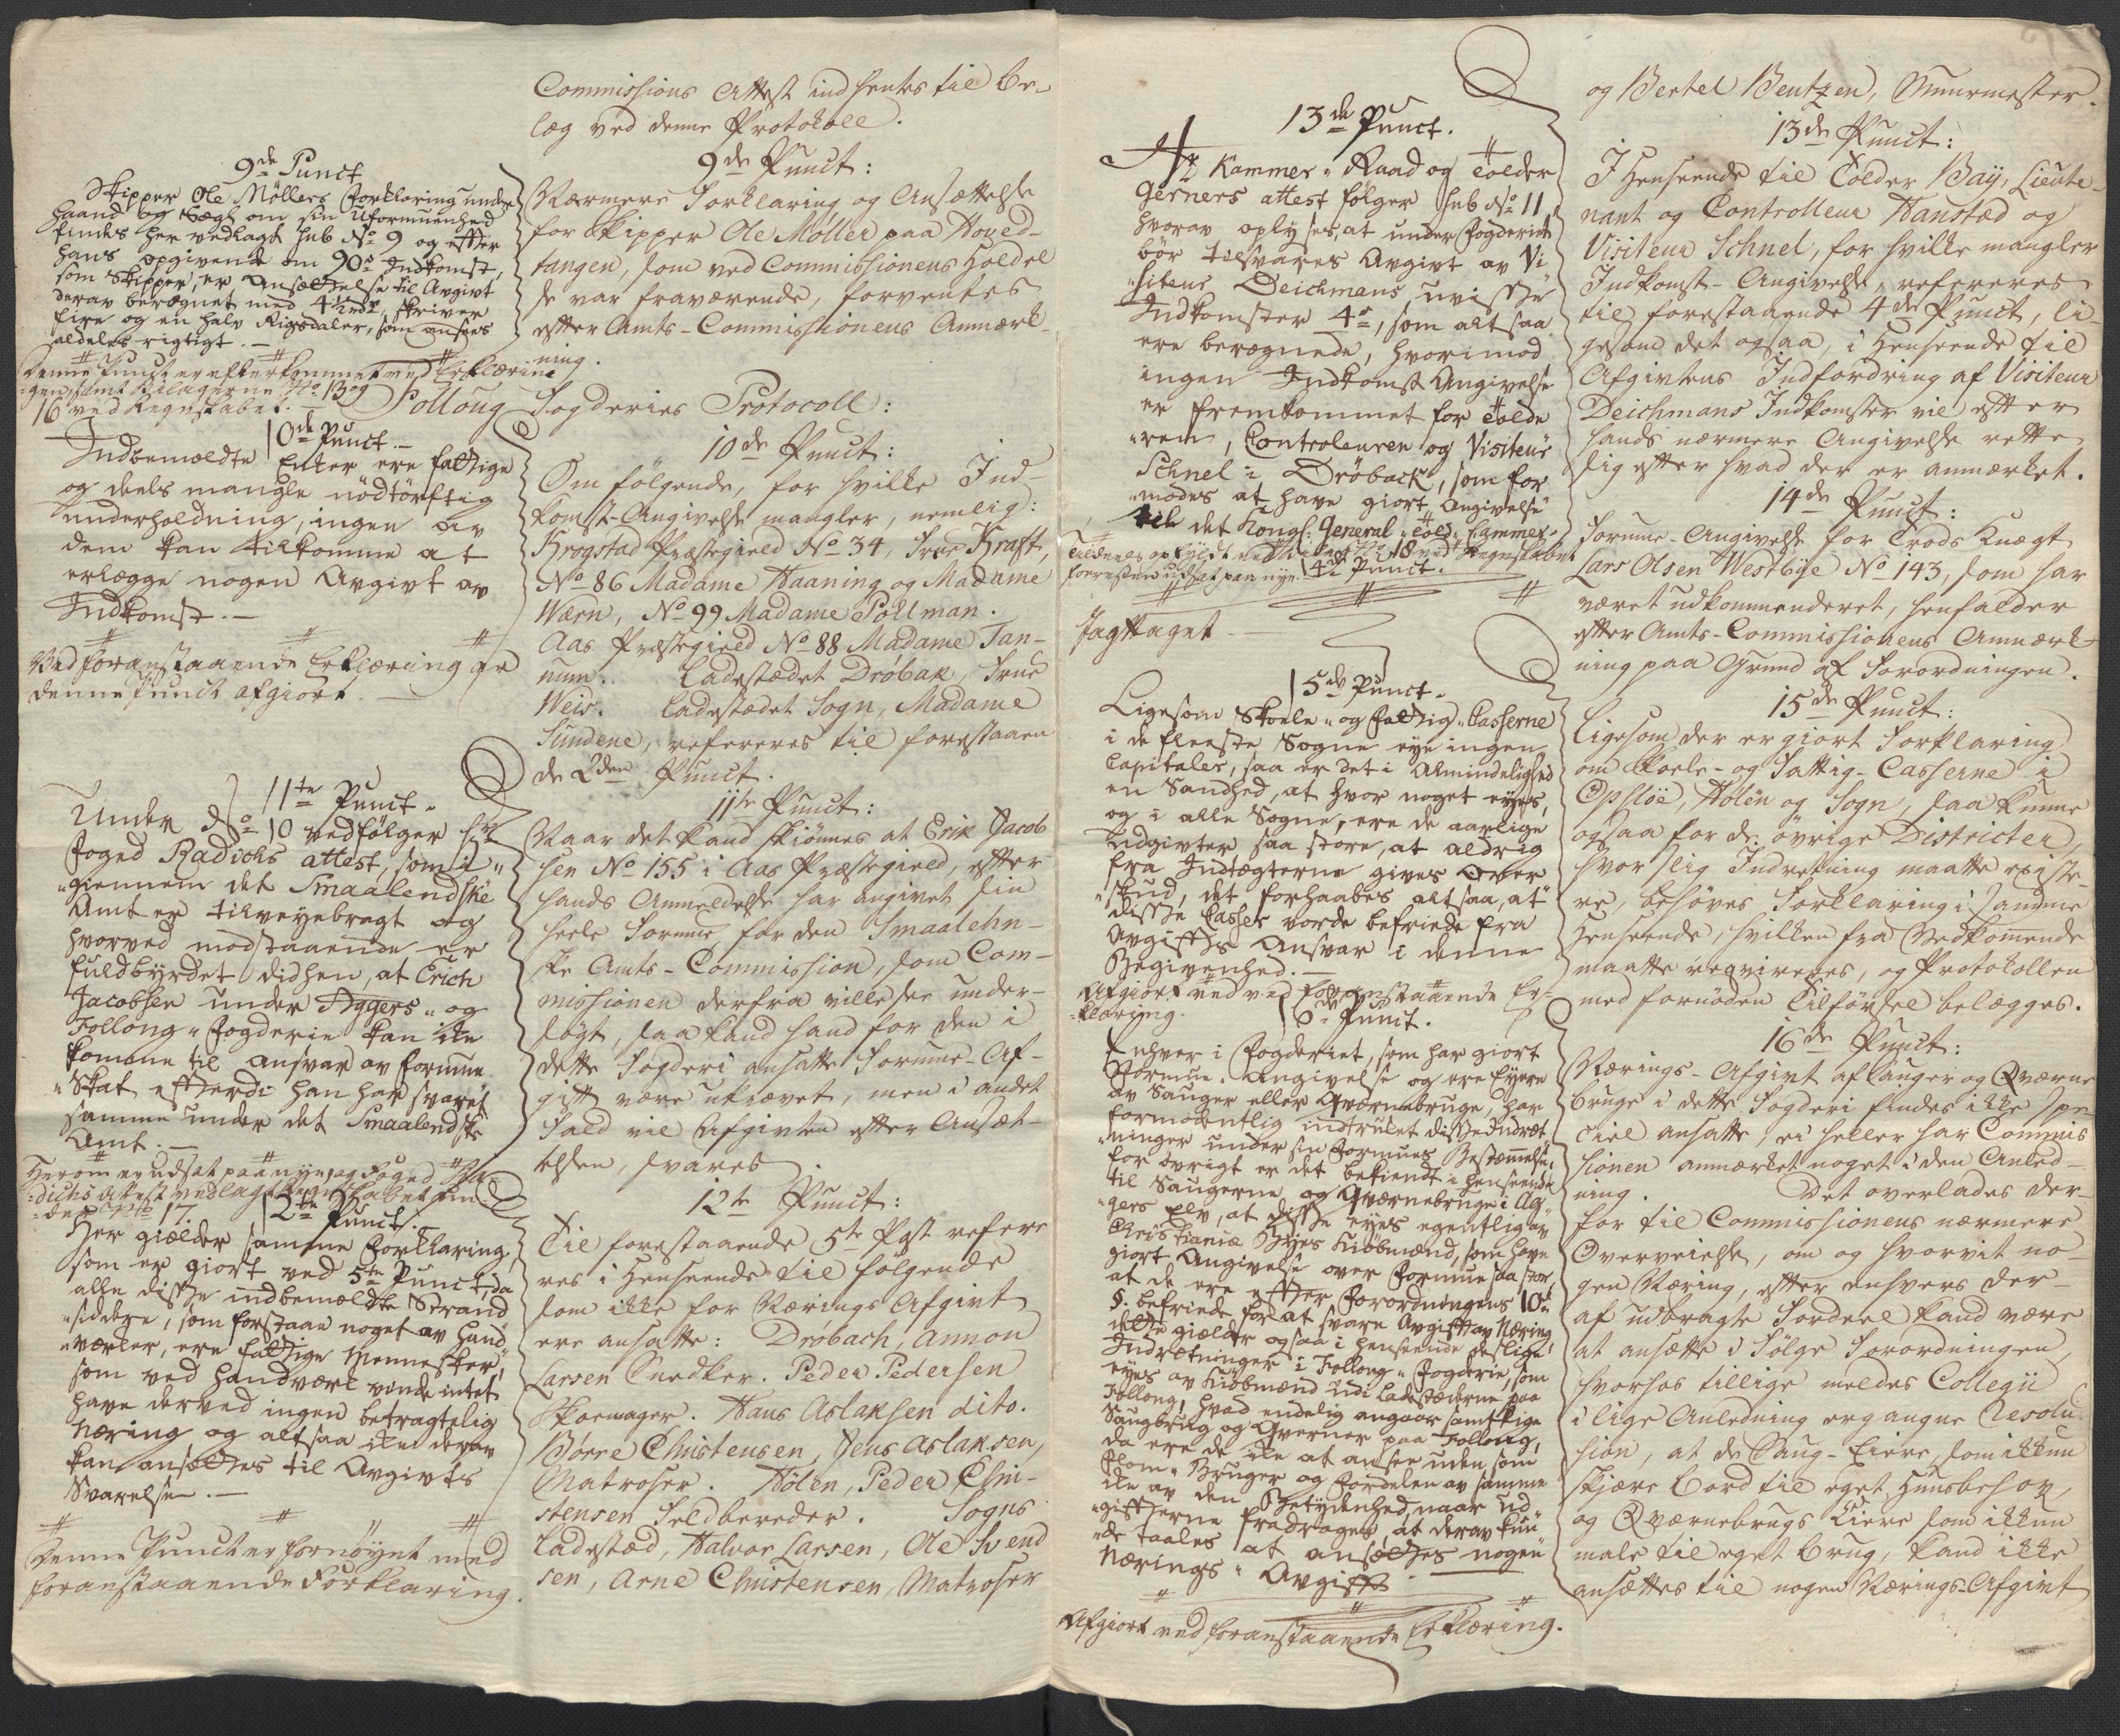 9de Punct
Skipper Ole Möllers Forklaring under
haand og Segl om sin Uformuenhed
findes her vedlagt sub No 9 og efter
hans opgivende om 90rd Indkomst,
som Skipper, er Ansættelse til Avgivt
derav beregnet med 4½rdr, skriver
fire og en halv Rigsdaler, som ansees
aldeles rigtigt.—
Denne Punct er efterkommet ved Erklærin
gen, samt Bilagerne No 13 og
16 ved Regnskabet.
10de Punct.—
Indbemældte Enker ere fattige
og deels mangle nödtörftig
underholdning, ingen av
dem kan tilkomme at
erlægge nogen Avgivt av
Indkomst.—
Ved foranstaaende Erklæring er
denne Punct afgiort.
11te Punct.
Under No 10 vedfölger Hr
Foged Radichs attest, som i-
giennem det Smaalendske
Amt er tilveyebragt og
hvorved modstaaende er
fuldbyrdet didhen, at Erich
Jacobsen under Aggers- og
Follong-Fogderie kan ike
komme til ansvar av formue
Skat efterdi han har svaret
samme under det Smaalendske
Amt.—
Herom er udsat paa nye, og Foged Ra-
dichs Attest vedlagt Regnskabet un
der No 17.
12te Punct.—
Her gielder samme Forklaring,
som er giort ved 5te Punct, da
alle disse indbemældte Strand
siddere, som forstaae noget av Hand
værker, ere fattige Mennesker,
som ved handværk vinde intet
have derved ingen betragtelig
Næring og altsaa ike derav
kan ansættes til Avgivts
Svarelse.—
Denne Punct er fornöyet med
foranstaaende Forklaring.
Commissions Attest indhentes til be-
læg ved denne Protokoll.
9de Punct:
Nærmere Forklaring og Ansættelse
for Skipper Ole Møller paa Hoved-
tangen, som ved Commissionens Holdel
se var fraværende, forventes
efter Amts-Commissionens Anmærk-
ning.
Follong Fogderies Protocoll:
10de Punct:
Om følgende, for hvilke Ind-
komst-Angivelse mangler, nemlig:
Krogstad Præstegield No 34, Frue Kraft,
No 86 Madame Haaning og Madame
Wærn, No 99 Madame Pollman.
Aas Præstegield No 88 Madame Tan-
num. Ladestædet Drøbak, Frue
Weis. Ladestædet Sogn, Madame
Sundene, refereres til forestaaen
de 2den Punct.
11te Punct:
Naar det kand skiönnes at Erik Jacob
sen No 155 i Aas Præstegield, efter
hands Anmeldelse har angivet sin
heele Formue for den Smaalehn-
ske Amts-Commission, som Com-
missionen derfra ville see under-
søgt, saa kand hand for den i
dette Fogderi ansatte Formue-Af-
gift være ukrævet, men i andet
Fald vil Afgivten efter Ansæt-
telsen, svares.
12te Punct:
Til forestaaende 5te Post refere
res i Henseende til følgende
som ikke for Nærings Afgivt
ere ansatte: Drøbach, Annon
Larsen Snedker. Peder Pedersen
Skoemager. Hans Aslaksen dito.
Børre Christensen, Jens Aslaksen,
Matroser. Hølen, Peder Chri-
stensen Feldbereder. Sogns
Ladestæd, Halvor Larsen, Ole Svend
sen, Arne Christensen, Matroser
13de Punct.
Hr Kammer-Raad og Tolder
Gerners attest fölger sub No 11
hvorav oplyses, at under Fogderiet
bör tilsvares Avgivt av Vi
siteur Deichmans uvisse
Indkomster 4rd, som altsaa
ere beregnede, hvorimod
ingen Indkomst Angivelse
er fremkommet for Tolde
ren, Controleuren og Visiteur
Schnel i Dröback, som for
modes at have giort Angivelse
til det Kongl: General-Told-Kammer.
Tildeels opfyldt ved Bilaget No 18 ved Regnskabet
forresten udsat paa nye.
14de Punct.
Jagttaget
15de Punct.
Ligesom Skoele- og Fattig-Casserne
i de fleeste Sogne eye ingen
Capitaler, saa er det i Almindelighed
en Sandhed, at hvor noget eyes,
og i alle Sogne, ere de aarlige
Udgivter saa store, at aldrig
fra Indtægterne gives Over
skud, det forhaabes altsaa, at
disse Casser vorde befriede fra
Avgifts Ansvar i denne
Begivenhed.—
Afgiort ved foranstaaende Er-
klæring.
16de Punct.
Enhver i Fogderiet, som har giort
Formue-Angivelse og ere Eyere
av Sauger eller Qværnebruge, har
formodentlig indtrulet disse Indræt
ninger under sin Formues Bestemmelse,
for övrigt er det bekiendt i henseende
til Saugerne og Qværnebruge i Ag-
gers Elv, at disse eyes egentlig av
Christianiæ Byes Kiöbmænd, som have
giort Angivelse over Formue saa stor,
at de ere efter Forordningens 10de
§. befriede for at svare Avgift av Næring
dette gielder ogsaa i henseende deslige
Indretninger i Follong-Fogderie, som
eyes av Kiöbmænd udi Ladestæderne paa
Follong, hvad endelig angaar samtlige
Saugbrug og Qverner paa Follong,
da ere de ike at ansee uden som
Flom-Bruger og Fordelen av samme
ike av den Betydenhed, naar ud
gifterne fradrages, at derav kun
de taales at ansættes nogen
Nærings-Avgift.
Afgiort ved foranstaaende Erklæring.
og Bertel Bentzen, Muurmester.
13de Punct:
I Henseende til Tolder Baÿ, Lieute-
nant og Controlleur Hanstæd og
Visiteur Schnel, for hvilke mangler
Indkomst-Angivelse, refereres
til forestaaende 4de Punct, li-
gesom det ogsaa, i Henseende til
Afgivtens Indfordring af Visiteur
Deichmans Indkomster vil efter
hands nærmere Angivelse rette
sig efter hvad der er anmærket.
14de Punct:
Formue-Angivelse for Trods Knægt
Lars Olsen Westbÿe No 143, som har
været udkommanderet, henfalder
efter Amts-Commissionens Anmærk-
ning paa Grund af Forordningen.
15de Punct:
Ligesom der er giort Forklaring
om Skoele- og Fattig-Casserne i
Opsløe, Hölen og Sogn, saa kunne
ogsaa for de øvrige Districter,
hvor slig Indretning maatte existe-
re, behøves Forklaring i samme
Henseende, hvilken fra Vedkommende
maatte reqvireres, og Protokollen
med fornöden Tilførsel belægges.
16de Punct:
Nærings-Afgivt af Sauger og Qværne
bruge i dette Fogderi findes ikke spe-
ciel ansatte, ei heller har Commis
sionen anmærket noget i den Anled-
ning. Det overlades der-
for til Commissionens nærmere
Overveielse, om og hvorvit no-
gen Næring, efter enhvers der-
af udbragte Fordeel kand være
at ansætte i Følge Forordningen,
hvorhos tillige meldes Collegii
i lige Anledning ergangne Resolu-
sion, at de Saug-Eiere, som ikkun
skjære Bord til eget Huusbehov,
og Qværnebrugs Eiere som ikkun
male til eget Brug, kand ikke
ansættes til nogen Nærings-Afgivt